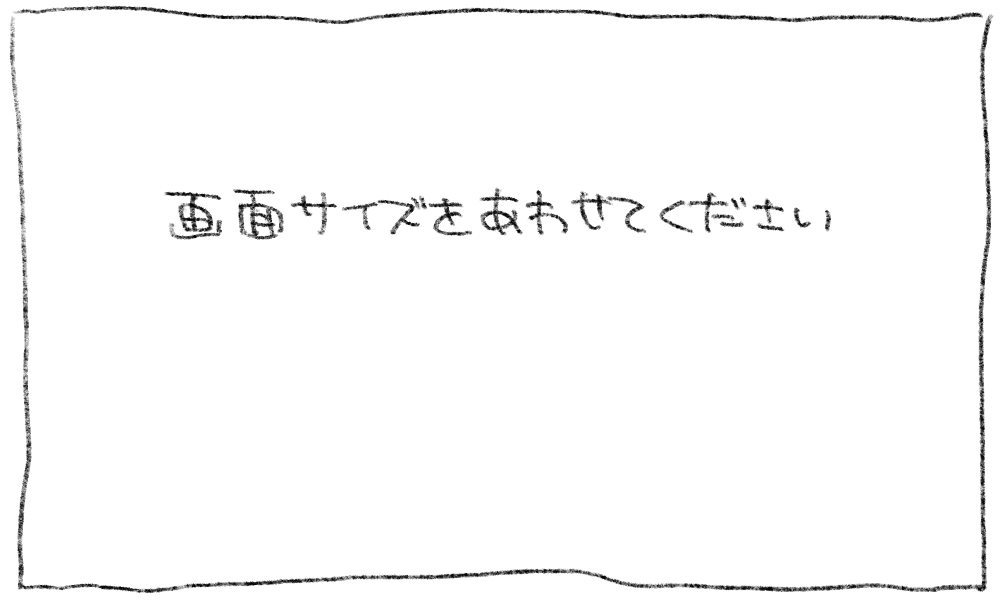 画面サイズをあわせてください